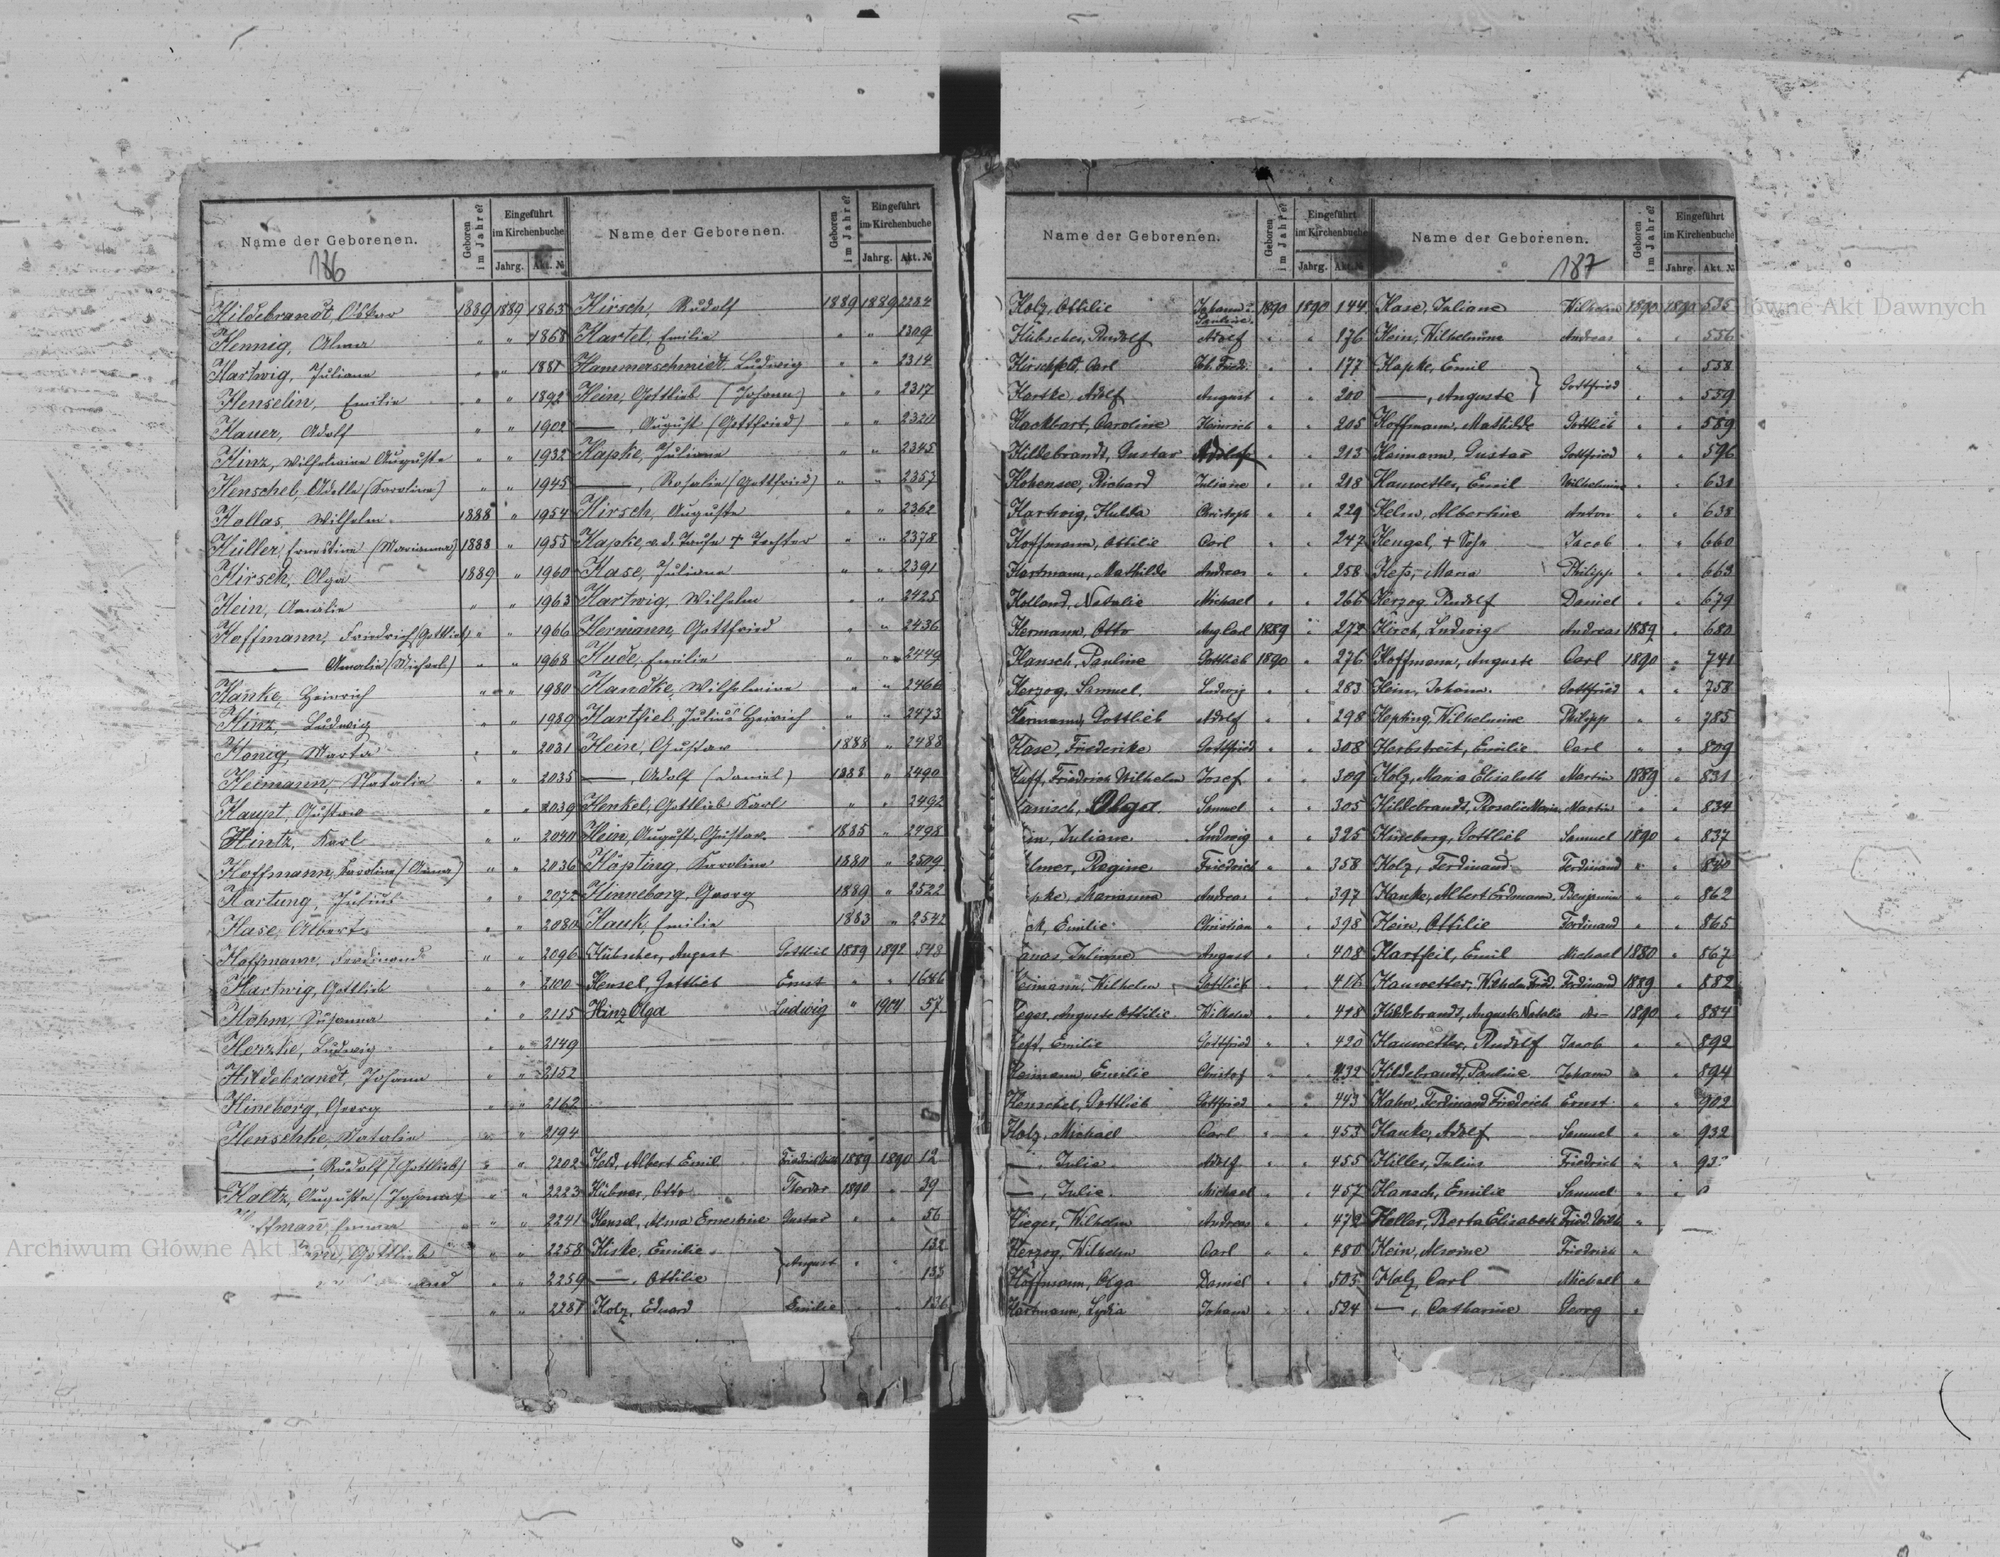 Name der Geborenen.
186
Geboren im Jahre?
Eingeführt im Kirchenbuche
Jahrg. Akt. №
Hildebrandt, Oskar 1889 1889 1863
Hennig, Alma " " 1868
Hartwig, Juliana " " 1881
Henselin, Emilie " " 1892
Hauer, Adolf " " 1902
Hinz, Wilhelmine Auguste " " 1932
Henschel, Adolla (Karoline) " " 1945
Hollas, Wilhelm 1888 " 1954
Hüller, Ernestine (Marianna) 1888 " 1955
Hirsch, Olga 1889 " 1960
Hein, Amalie " " 1963
Hoffmann, Friedrich (Gottlieb) " " 1966
— Amalie (Michael) " " 1968
Hanke, Heinrich " " 1980
Hinz, Ludwig " " 1989
Honig, Marta " " 2031
Heimann, Natalie " " 2035
Haupt, Gustav " " 2039
Hintz, Karl " "
Hoffmann, Karoline (Anna) " " 2036
Hartung, Julius " " 2072
Hase, Albert " " 2080
Hoffmann, Ferdinand " " 2096
Hartwig, Gottlieb " " 2100
Höhm, Susanna " " 2115
Herzke, Ludwig " " 2149
Hildebrandt, Johann " " 2152
Hineberg, Georg " " 2162
Henschke, Natalie " " 2194
—, Rudolf (Gottlieb) " " 2202
Holtz, Auguste (Johann) " " 2223
ffman, Emma " " 2241
Gottlieb " " 2258
and " " 2259
" " 2281
Name der Geborenen.
Geboren im Jahre?
Eingeführt im Kirchenbuche
Jahrg. Akt. №
Hirsch, Rudolf 1889 1889 2284
Hartel, Emilie " " 2309
Hammerschmidt, Ludwig " " 2314
Hein, Gottlieb (Johann) " " 2317
—, August (Gottfried) " " 2320
Hapke, Juliana " " 2345
—, Rosalie (Gottfried) " " 2357
Hirsch, Auguste " " 2362
Hapke, v. d. Taufe † Tochter " " 2378
Hase, Juliana " " 2391
Hartwig, Wilhelm " " 2425
Hermann, Gottfried " " 2436
Hude, Emilie " " 2449
Handke, Wilhelmine " " 2466
Hartfiel, Julius Heinrich " " 2473
Hein, Gustav 1888 " 2488
—, Adolf (Daniel) 1888 " 2490
Henkel, Gottlieb Karl " " 2492
Hein, August Gustav 1885 " 2498
Höpting, Karoline 1880 " 2509
Hinneborg, Georg 1889 " 2522
Hauk, Emilie 1883 " 2542
Hübscher, August Gottlieb 1889 1892 548
Hensel, Gottlieb Ernst " " 1686
Hinz Olga Ludwig " 1904 57
Held, Albert Emil 1889 1890 12
Hübner, Otto Theodor 1890 " 39
Hensel, Alma Ernestine Gustav " " 56
Hiske, Emilie } August " " 132
—, Ottilie 133
Holz, Eduard Emilie " " 136
Name der Geborenen.
Geboren im Jahre?
Eingeführt im Kirchenbuche
Jahrg. Akt. №
Holz, Ottilie Johann u. Pauline 1890 1890 144
Hübscher, Rudolf Adolf " " 176
Hirschfeld, Carl Joh. Fried. " " 177
Hartke, Adolf August " " 200
Hackbart, Caroline Heinrich " " 205
Hildebrandt, Gustav Adolf " " 213
Hohensee, Richard Juliane " " 218
Hartwig, Hulda Christoph " " 229
Hoffmann, Ottilie Carl " " 247
Hartmann, Mathilde Andreas " " 258
Holland, Natalie Michael " " 266
Hermann, Otto Aug Carl 1889 " 272
Hansch, Pauline Gottlieb 1890 " 276
Herzog, Samuel Ludwig " " 283
Hermann, Gottlieb Adolf " " 298
Hase, Friederike Gottfried " " 308
Haff, Friedrich Wilhelm Josef " " 309
anisch, Olga Samuel " " 305
ein, Juliane Ludwig " " 325
lmer, Regine Friedrich " " 358
pke, Marianna Andreas " " 397
ck, Emilie Christian " " 398
anas, Juliane August " " 408
eimann, Wilhelm Gottlieb " " 416
eger, Auguste Ottilie Wilhelm " " 418
eft, Emilie Gottfried " " 420
Heimann, Emilie Christof " " 432
Henschel, Gottlieb Gottfried " " 443
Holz, Michael Carl " " 453
—, Julie Adolf " " 455
—, Julie Michael " " 457
Hieger, Wilhelm Andreas " " 472
Herzog, Wilhelm Carl " " 480
Hoffmann, Olga Daniel " " 505
Hartmann, Lydia Johann " " 524
Name der Geborenen.
187
Geboren im Jahre?
Eingeführt im Kirchenbuche
Jahrg. Akt. №
Hase, Juliane Wilhelm 1890 1890 535
Hein, Wilhelmine Andreas " " 556
Hapke, Emil } Gottfried " " 558
—, Auguste " " 559
Hoffmann, Mathilde Gottlieb " " 589
Heimann, Gustav Gottfried " " 596
Hauwetter, Emil Wilhelmine " " 631
Helm, Albertine Anton " " 638
Hengel, † Sohn Jacob " " 660
Heß, Maria Philipp " " 663
Herzog, Rudolf Daniel " " 679
Hirch, Ludwig Andreas 1889 " 680
Hoffmann, Auguste Carl 1890 " 741
Hein, Johann Gottfried " " 758
Hepting, Wilhelmine Philipp " " 785
Herbstreit, Emilie Carl " " 809
Holz, Maria Elisabeth Martin 1889 " 831
Hildebrandt, Rosalie Maria Martin " " 834
Hineberg, Gottlieb Samuel 1890 " 837
Holz, Ferdinand Ferdinand " " 840
Hanke, Albert Erdmann Benjamin " " 862
Hein, Ottilie Ferdinand " " 865
Hartfeil, Emil Michael 1880 " 867
Hauwetter, Wilhelm Fried. Ferdinand 1889 " 882
Hildebrandt, Auguste Natalie do— 1890 " 884
Hauwetter, Rudolf Jacob " " 892
Hildebrandt, Pauline Johann " " 894
Hahn, Ferdinand Friedrich Ernst " " 902
Hanke, Adolf Samuel " " 932
Hiller, Julius Friedrich " " 93
Hansch, Emilie Samuel " "
Heller, Berta Elisabeth Fried. Wilh "
Hein, Alwine Friedrich "
Holz, Carl Michael "
—, Catharine Georg "
Archiwum Główne Akt Dawnych
Główne Akt Dawnych